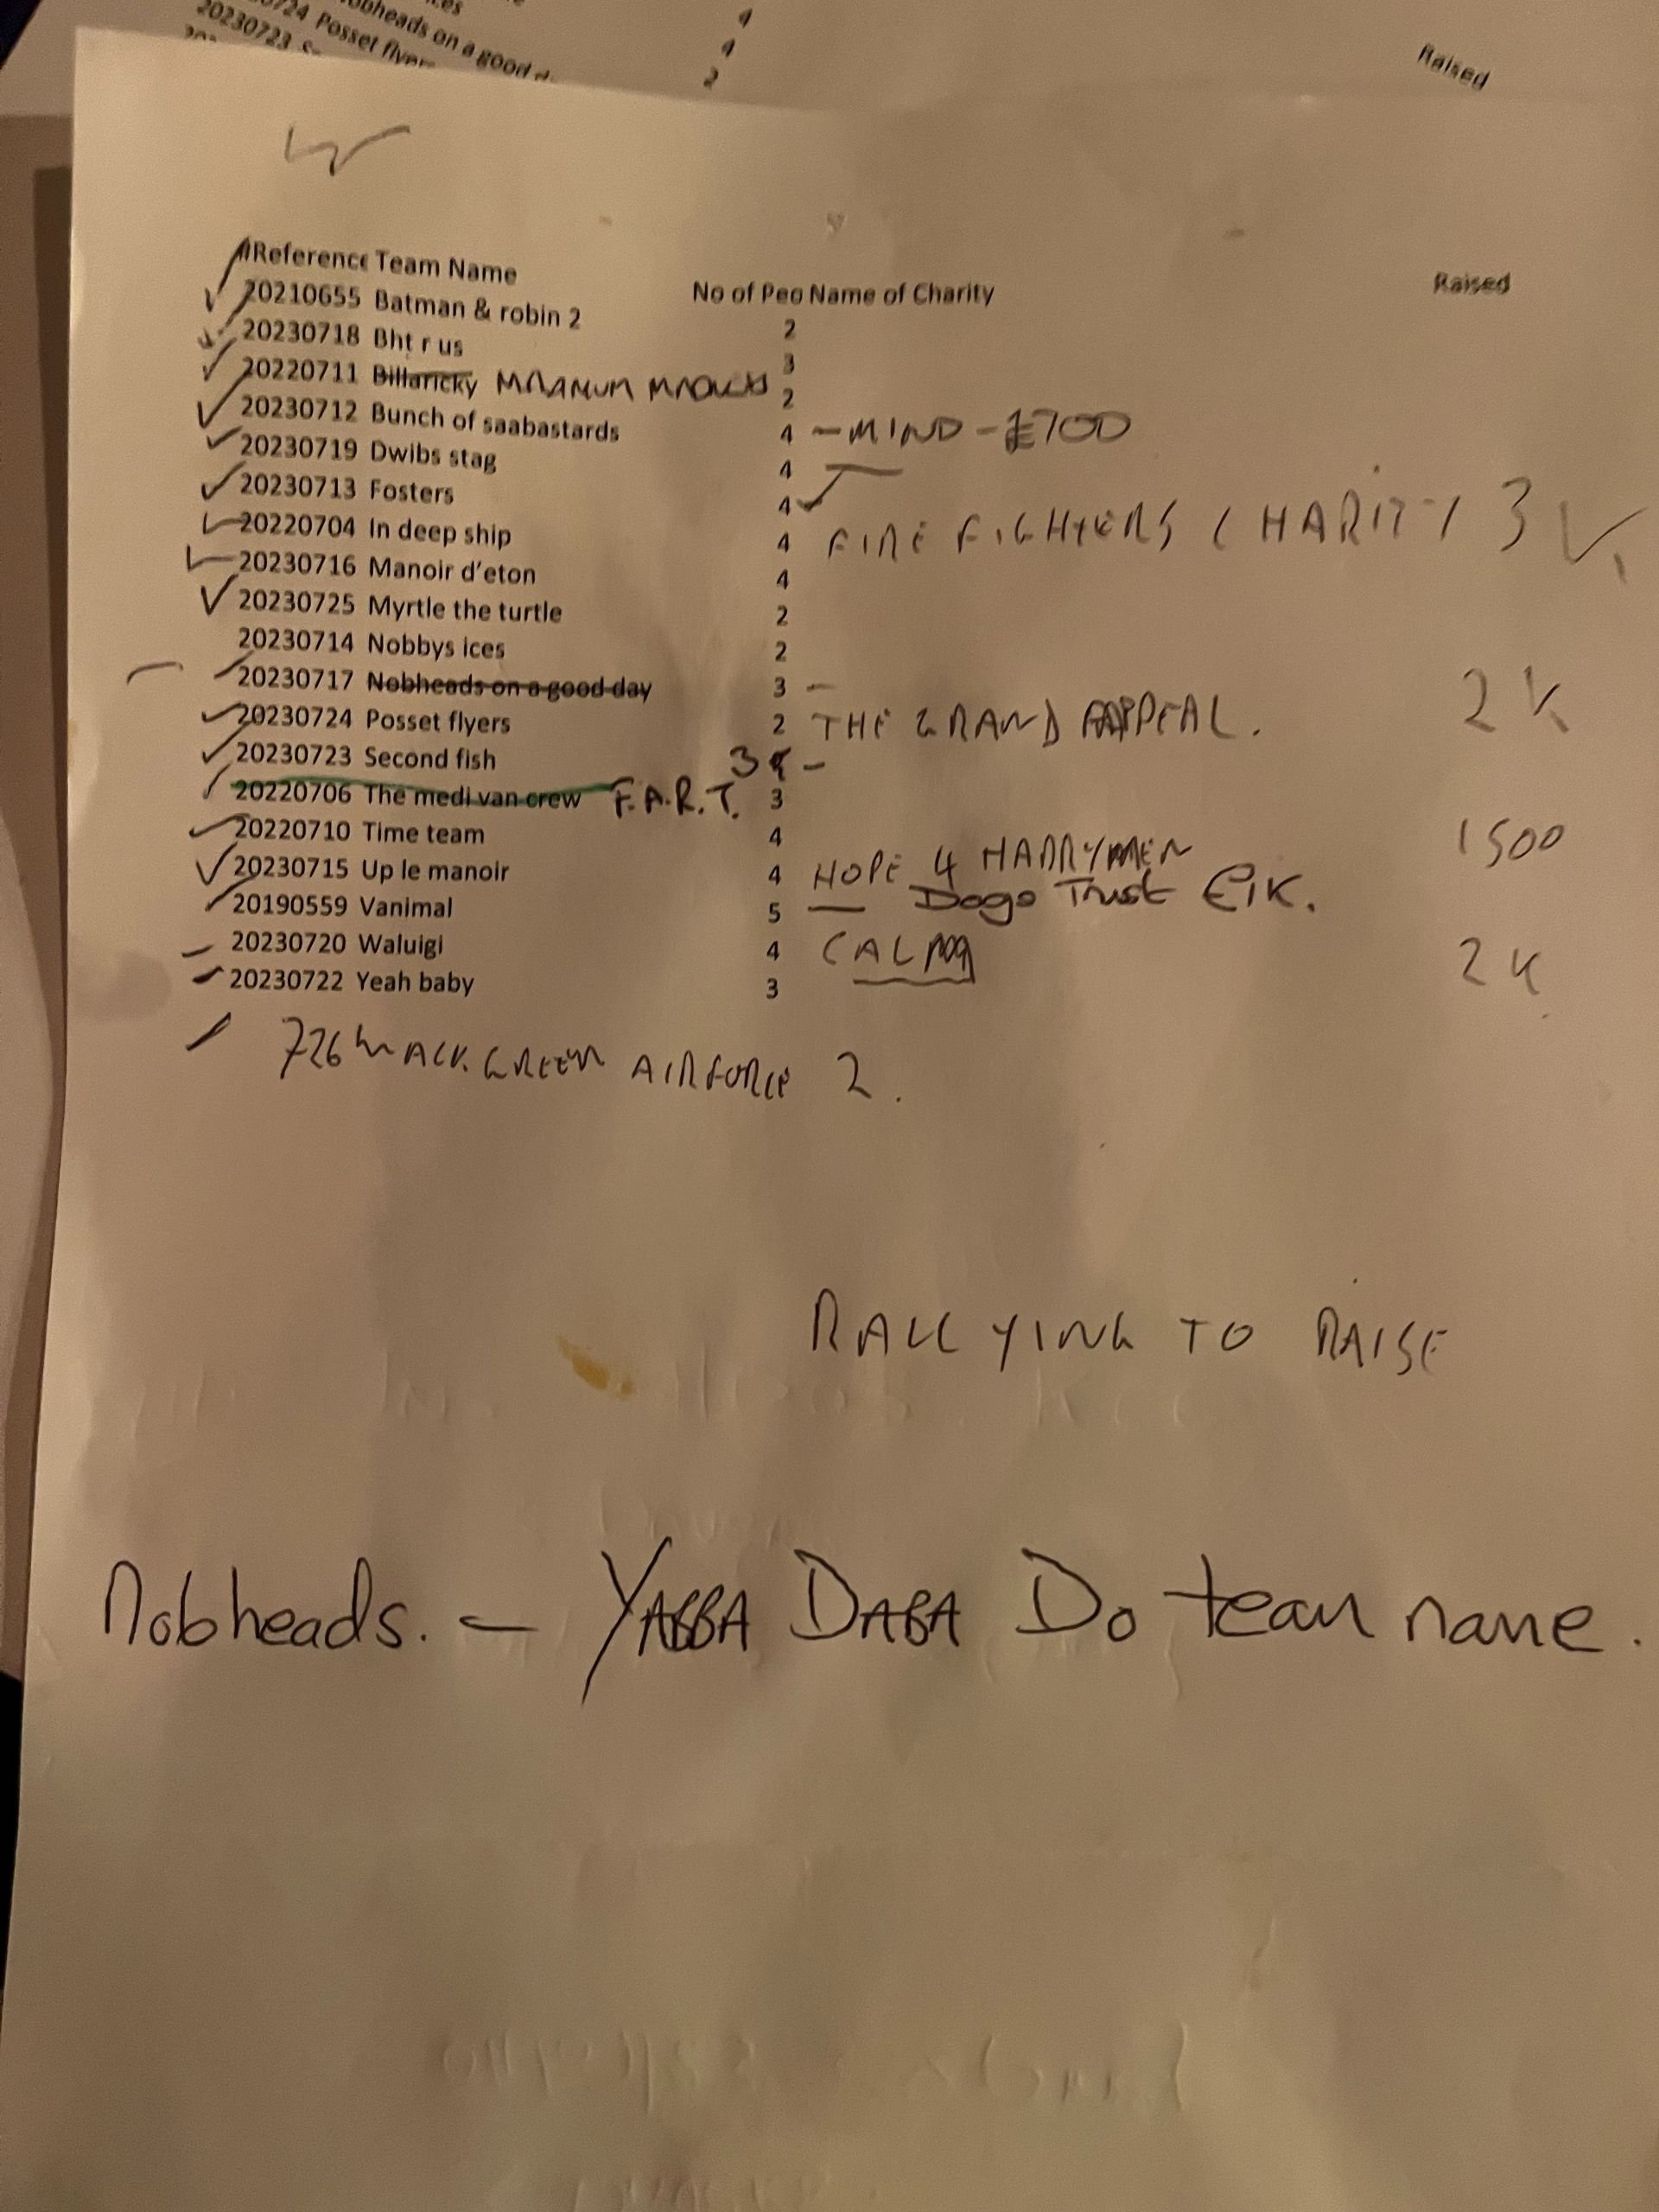 ces
0724 Posset flyers
obheads on a good d
20230723 S
4
4
2
Raised
Reference Team Name No of Peo Name of Charity Raised
20210655 Batman & robin 2 2
20230718 Bht r us 3
20220711 Billaricky 2
20230712 Bunch of saabastards 4 - MIND - £700
20230719 Dwibs stag 4
20230713 Fosters 4
20220704 In deep ship 4 FIRE FIGHTERS CHARITY 3K
20230716 Manoir d'eton 4
20230725 Myrtle the turtle 2
20230714 Nobbys ices 2
20230717 Nobheads on a good day 3 -
20230724 Posset flyers 2 THE GRAND APPEAL. 2K
20230723 Second fish 3 -
20220706 The medi van crew F.A.R.T. 3
20220710 Time team 4
20230715 Up le manoir 4 HOPE 4 1500
20190559 Vanimal 5 Dogs Trust £1K.
20230720 Waluigi 4 CALM 2K
20230722 Yeah baby 3
726 GREEN AIRFORCE 2.
RALLYING TO RAISE
Nobheads. - YABBA DABA DO team name.